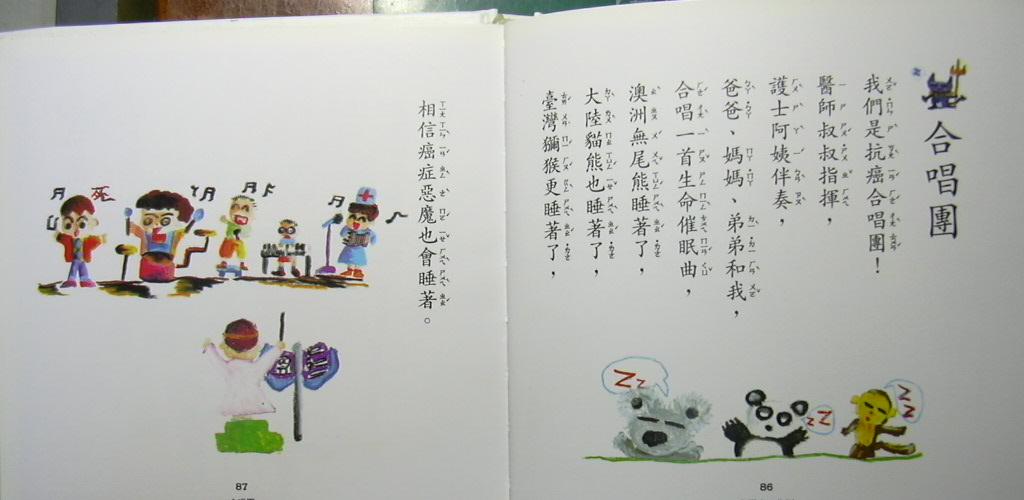 合唱團
我們是抗癌合唱團！
醫師叔叔指揮，
護士阿姨伴奏，
爸爸、媽媽、弟弟和我，
合唱一首生命催眠曲，
澳洲無尾熊睡著了，
大陸貓熊也睡著了，
臺灣獼猴更睡著了，
相信癌症惡魔也會睡著。
死
YA
ZZ
ZZ
ZZ
87
86